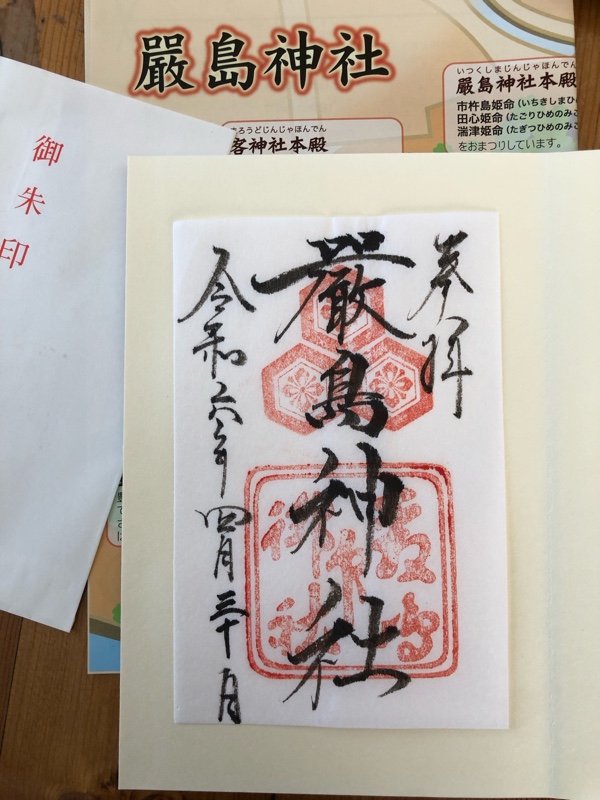 嚴島神社
いつくしまじんじゃほんでん
嚴島神社本殿
市杵島姫命(いちきしまひ
田心姫命(たごりひめのみこ
湍津姫命(たぎつひめのみこ
をおまつりしています。
ろうどじんじゃほんでん
客神社本殿
御朱印
奉拝
嚴島神社
令和六年四月三十日